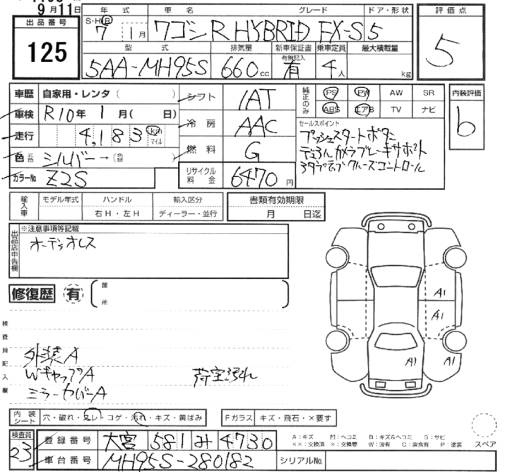 9月11日
出品番号 125
年式 S・H・R 7年1月 車名 ワゴンR HYBRID FX-S グレード ドア・形状 5
型式 5AA-MH95S 排気量 660cc 新車保証書 有 乗車定員 4人 最大積載量 kg
評価点 5
車歴 自家用・レンタ( )
車検 R10年1月( 日)
走行 4,183 km マイル
色 シルバー→
カラーNo. Z2S
シフト IAT
冷房 AAC
燃料 G
リサイクル料金 6470円
純正のみ PS PW AW SR
ABS エアB TV ナビ
内装評価 b
セールスポイント
プッシュスタートボタン
デュアルカメラブレーキサポート
アダプティブクルーズコントロール
輸入車 モデル年式 年 ハンドル 右H・左H 輸入区分 ディーラー・並行
書類有効期限 月 日迄
出品店申告欄 ※注意事項等記載
オーディオレス
修復歴 有 箇所
A1
A1 A1
検査員記入欄
外装A
WキャップA 荷室汚れ
ミラーカバーA
内装シート 穴・破れ・スレ・コゲ・汚れ・キズ・黄ばみ Fガラス キズ・飛石・×要す
A:キズ M:ヘコミ B:キズ&ヘコミ S:サビ
スペア
検査員 23
登録番号 大宮 581 み 4730
車台番号 MH95S-280182 シリアルNo.